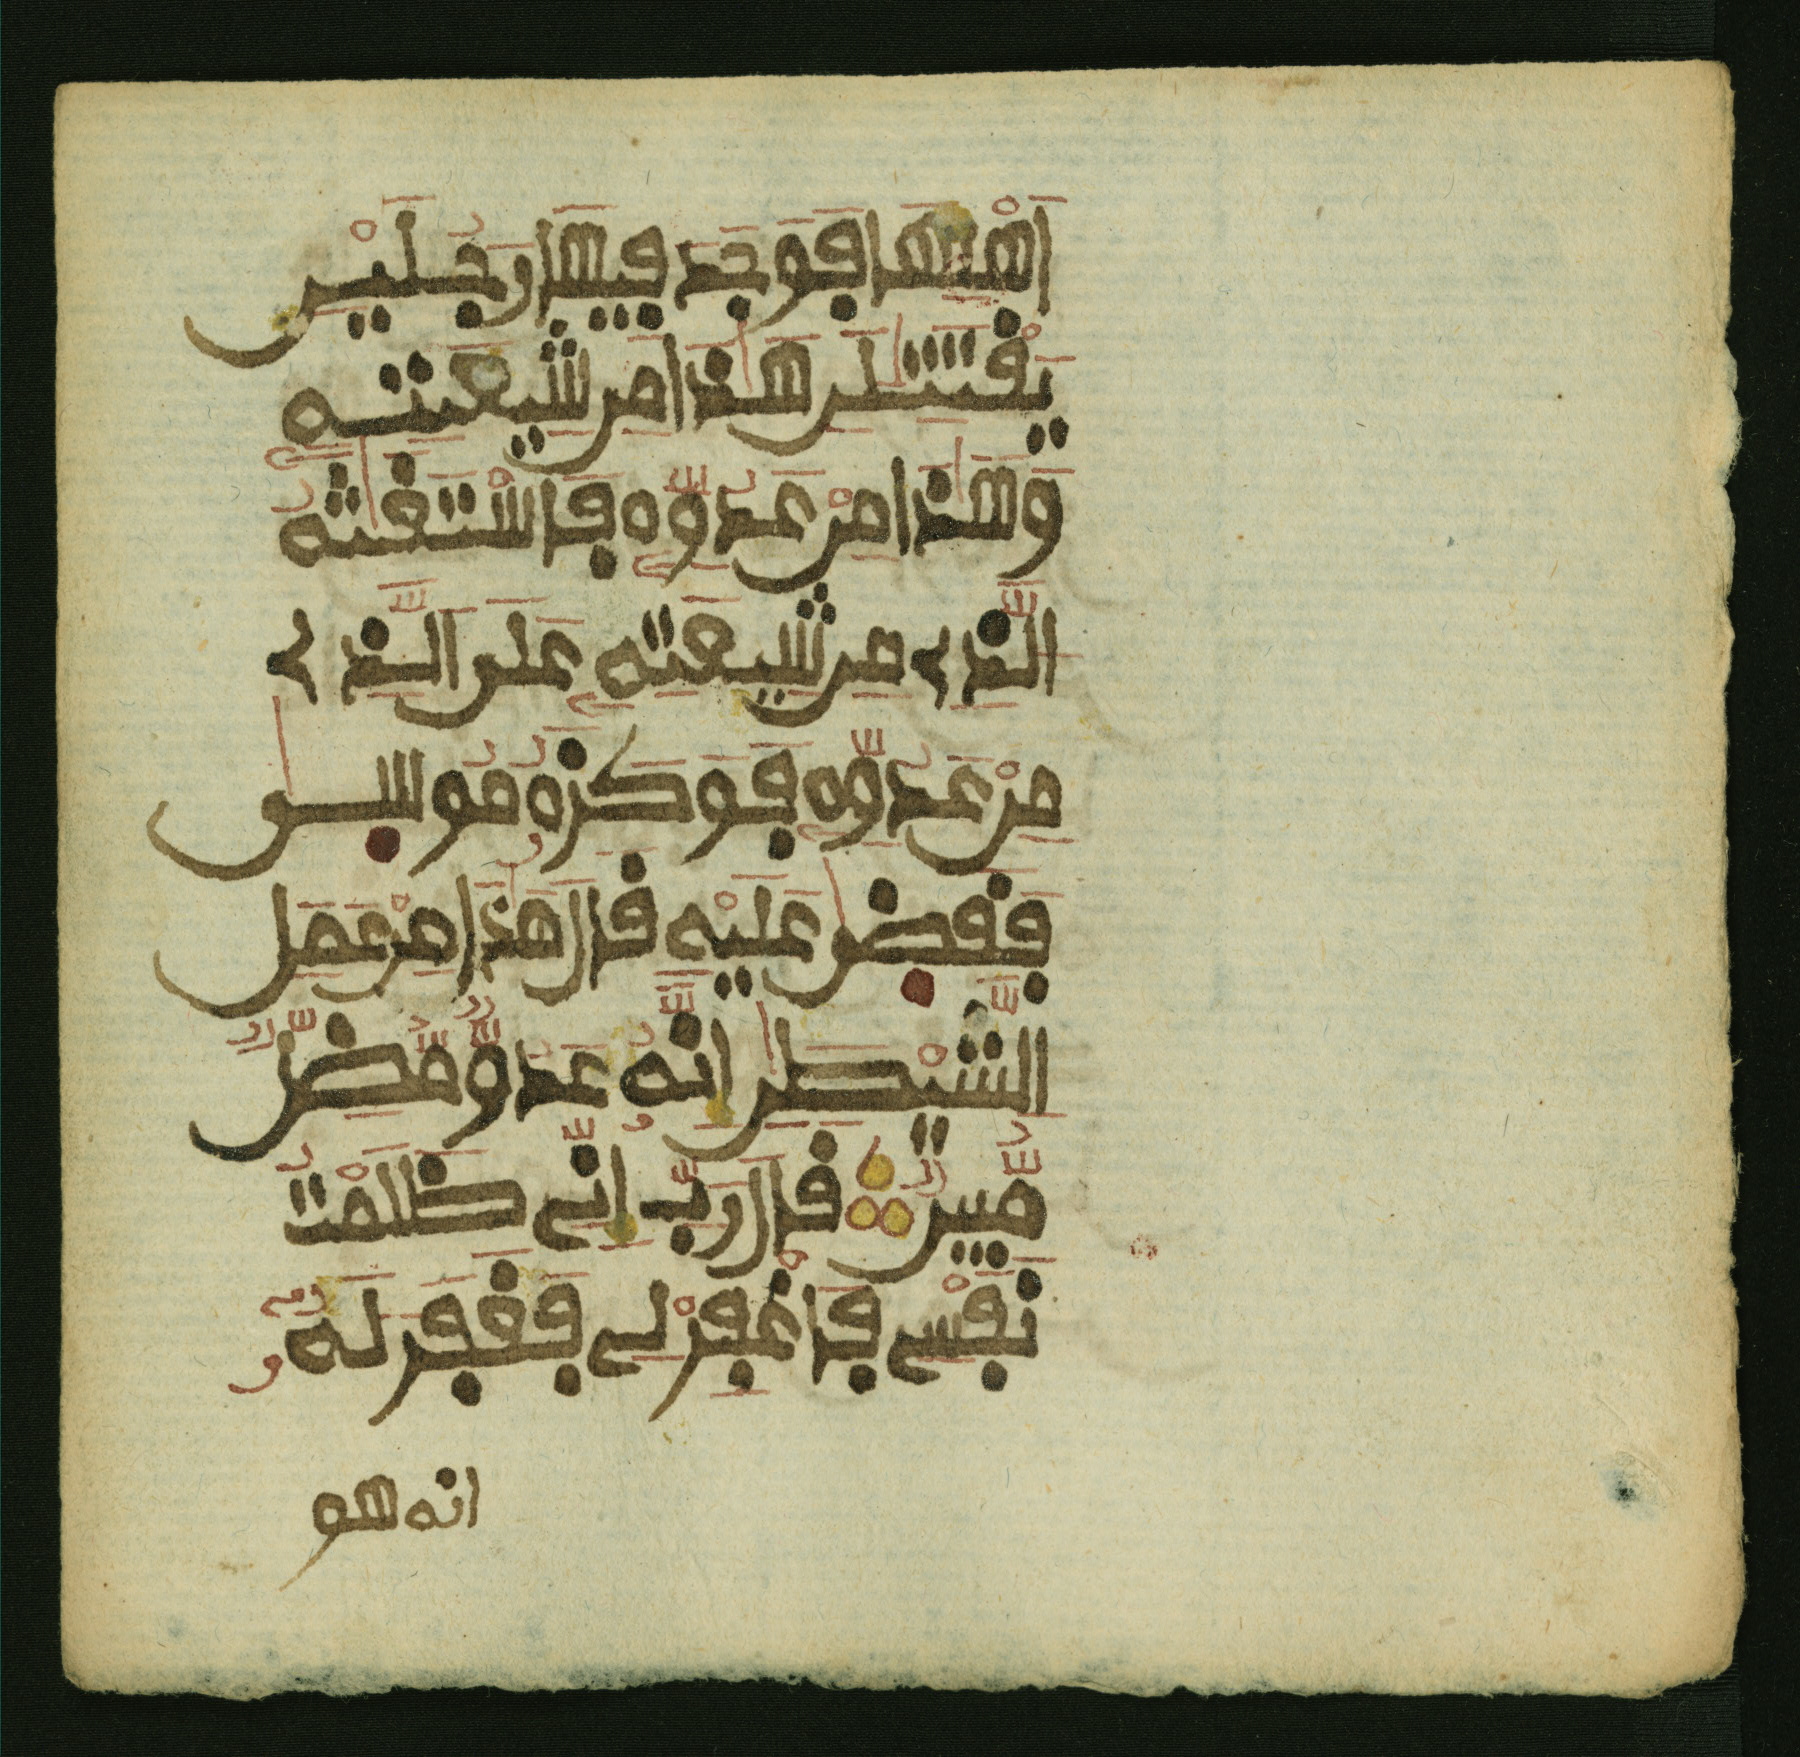 أَهْلِهَا فَوَجَدَ فِيهَا رَجُلَيْنِ
يَقْتَتِلَٰنِ هَٰذَا مِن شِيعَتِهِ
وَهَٰذَا مِنْ عَدُوِّهِ فَاسْتَغَٰثَهُ
الَّذِي مِن شِيعَتِهِ عَلَى الَّذِي
مِنْ عَدُوِّهِ فَوَكَزَهُ مُوسَىٰ
فَقَضَىٰ عَلَيْهِ قَالَ هَٰذَا مِنْ عَمَلِ
الشَّيْطَٰنِ إِنَّهُ عَدُوٌّ مُّضِلٌّ
مُّبِينٌ قَالَ رَبِّ إِنِّي ظَلَمْتُ
نَفْسِي فَاغْفِرْ لِي فَغَفَرَ لَهُ
انه هو